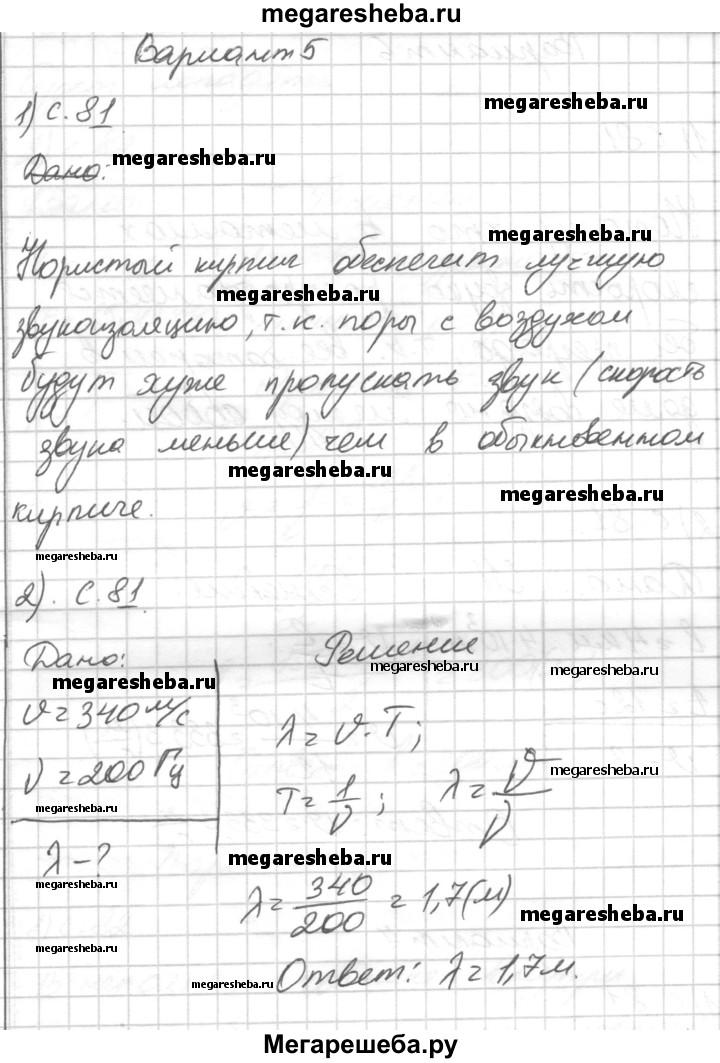 megaresheba.ru
Вариант 5
1) с. 81
megaresheba.ru
Дано:
megaresheba.ru
megaresheba.ru
Пористый кирпич обеспечит лучшую
megaresheba.ru
звукоизоляцию, т.к. поры с воздухом
будут хуже пропускать звук (скорость
звука меньше) чем в обыкновенном
megaresheba.ru
megaresheba.ru
кирпиче.
megaresheba.ru
2). с. 81.
Дано:
Решение
megaresheba.ru
megaresheba.ru
megaresheba.ru
υ = 340 м/с
λ = υ · T;
ν = 200 Гц
T = 1/ν; λ = υ/ν
megaresheba.ru
megaresheba.ru
λ - ?
megaresheba.ru
megaresheba.ru
λ = 340/200 = 1,7 (м)
megaresheba.ru
megaresheba.ru
Ответ: λ = 1,7 м.
megaresheba.ru
Мегарешеба.ру